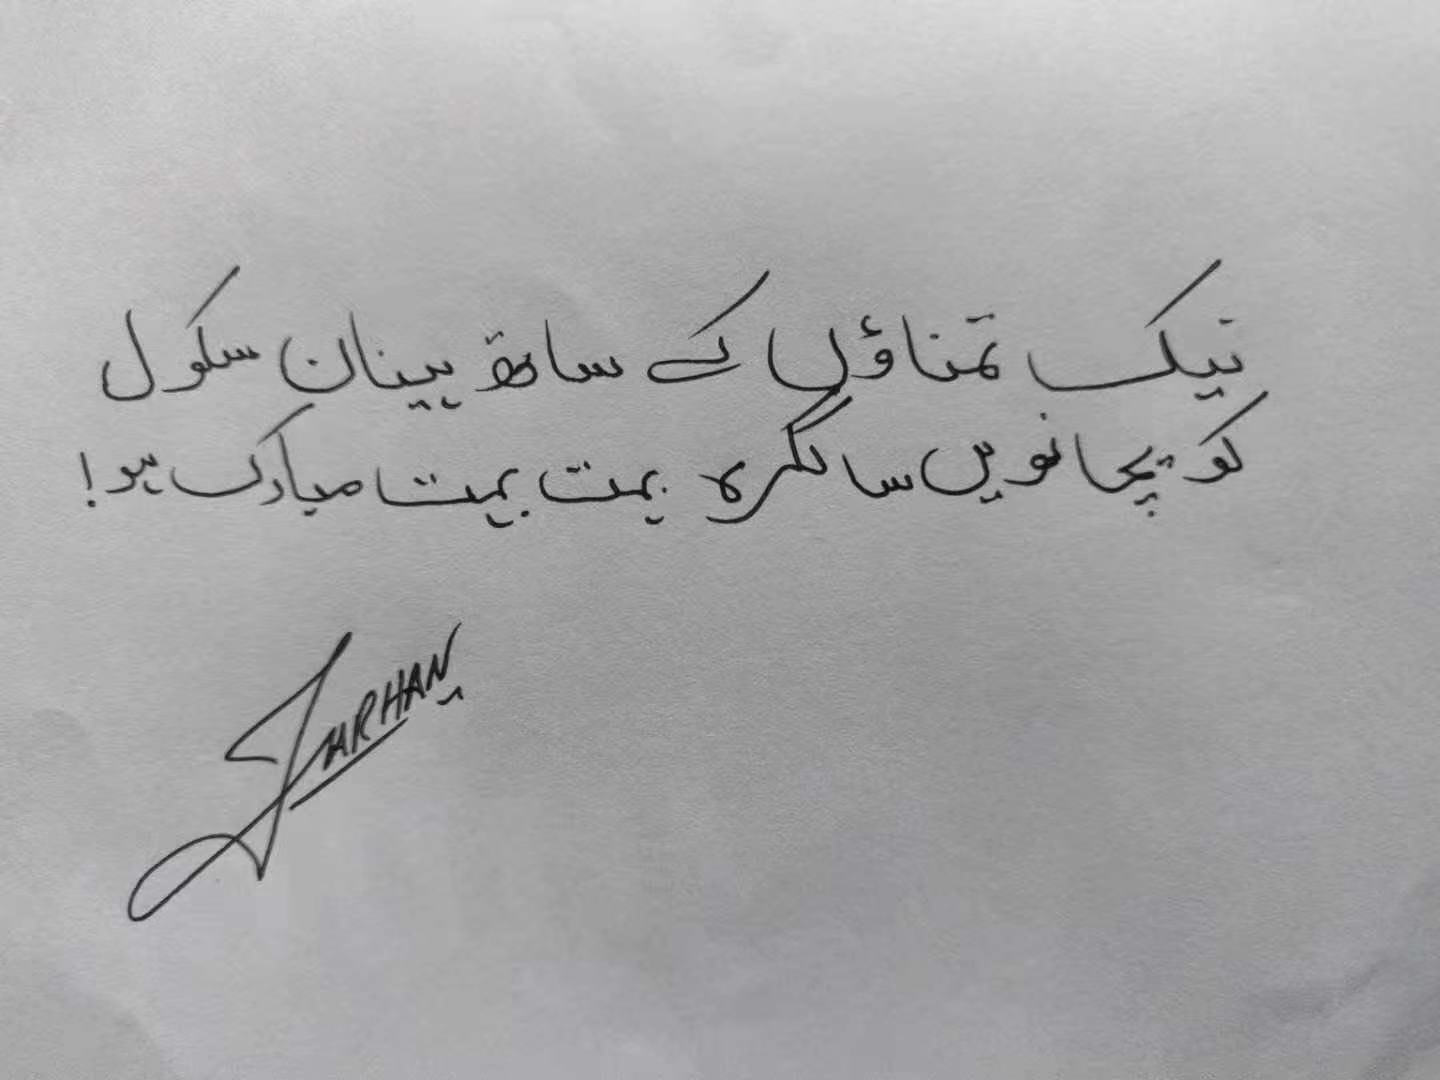 نیک تمناؤں کے ساتھ بینان سکول
کو پچانویں سالگرہ بہت بہت مبارک ہو!
FARHAN